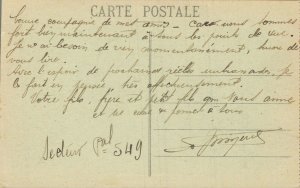 CARTE POSTALE
bonne compagnie de mes amis - Car nous sommes
fort bien maintenant à tous les points de vue.
Je n'ai besoin de rien momentanément, hors de
vous lire.
Avec l'espoir de prochaines réelles embrassades, je
le fait en pensée très affectueusement.
Votre fils, frère et petit fils qui vous aime
et de cœur à tous
Secteur Pal 549